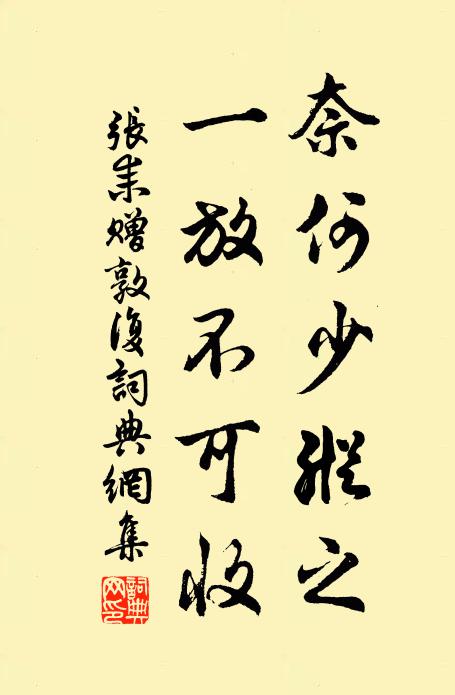 奈何少縱之
一放不可收
張耒贈敦復詞典網集
詞典网印